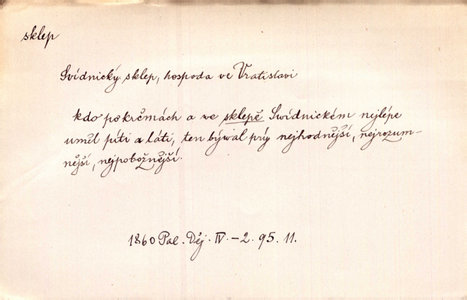 sklep
Svídnický sklep, hospoda ve Vratislavi
kdo po krčmách a ve sklepě Svídnickém nejlépe
uměl píti a láti, ten býwal prý nejhodnější, nejrozum-
nější, nejpobožnější.
1860 Pal. Děj. IV-2. 95. 11.